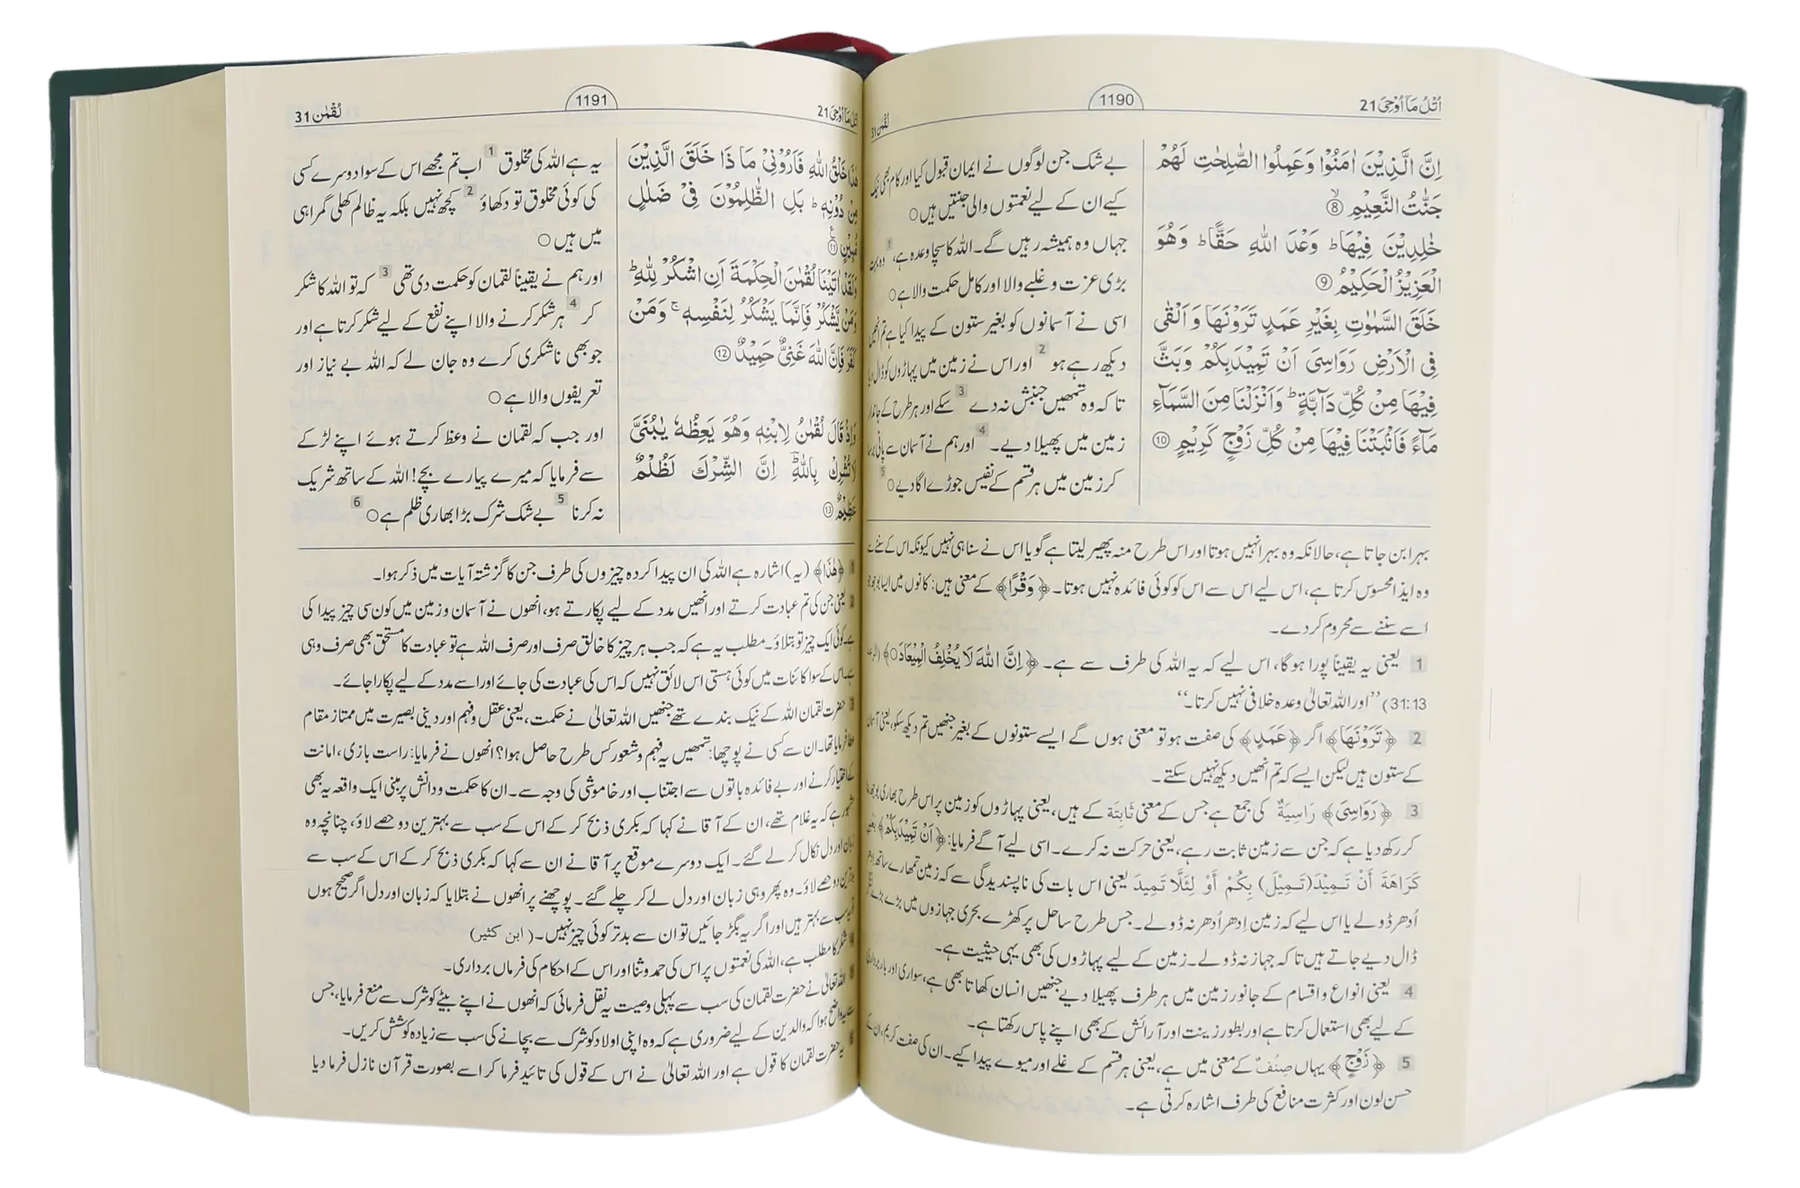 اُتْلُ مَا اُوْحِيَ 21
1190
لُقْمٰن 31
اِنَّ الَّذِيْنَ اٰمَنُوْا وَعَمِلُوا الصّٰلِحٰتِ لَهُمْ
جَنّٰتُ النَّعِيْمِ ۙ ⑧
خٰلِدِيْنَ فِيْهَا ؕ وَعْدَ اللّٰهِ حَقًّا ؕ وَهُوَ
الْعَزِيْزُ الْحَكِيْمُ ⑨
خَلَقَ السَّمٰوٰتِ بِغَيْرِ عَمَدٍ تَرَوْنَهَا وَاَلْقٰى
فِى الْاَرْضِ رَوَاسِيَ اَنْ تَمِيْدَ بِكُمْ وَبَثَّ
فِيْهَا مِنْ كُلِّ دَآبَّةٍ ؕ وَاَنْزَلْنَا مِنَ السَّمَآءِ
مَآءً فَاَنْۢبَتْنَا فِيْهَا مِنْ كُلِّ زَوْجٍ كَرِيْمٍ ⑩
بے شک جن لوگوں نے ایمان قبول کیا اور کام بھی نیک
کیے ان کے لیے نعمتوں والی جنتیں ہیں○
جہاں وہ ہمیشہ رہیں گے۔ اللہ کا سچا وعدہ ہے، 1 وہ بہت
بڑی عزت و غلبے والا اور کامل حکمت والا ہے○
اسی نے آسمانوں کو بغیر ستون کے پیدا کیا ہے تم انھیں
دیکھ رہے ہو 2 اور اس نے زمین میں پہاڑوں کو ڈال دیا
تاکہ وہ تمھیں جنبش نہ دے 3 سکے اور ہر طرح کے جاندار
زمین میں پھیلا دیے۔ 4 اور ہم نے آسمان سے پانی برسا
کر زمین میں ہر قسم کے نفیس جوڑے اگا دیے○ 5
بہرا بن جاتا ہے، حالانکہ وہ بہرا نہیں ہوتا اور اس طرح منہ پھیر لیتا ہے گویا اس نے سنا ہی نہیں کیونکہ اس کے سننے سے
وہ ایذا محسوس کرتا ہے، اس لیے اس سے اس کو کوئی فائدہ نہیں ہوتا۔ ﴿وَقْرًا﴾ کے معنی ہیں: کانوں میں ایسا بوجھ جو
اسے سننے سے محروم کر دے۔
1 یعنی یہ یقیناً پورا ہو گا، اس لیے کہ یہ اللہ کی طرف سے ہے۔ ﴿اِنَّ اللّٰهَ لَا يُخْلِفُ الْمِيْعَادَ○﴾ (الرعد
31:13) ’’اور اللہ تعالیٰ وعدہ خلافی نہیں کرتا۔‘‘
2 ﴿تَرَوْنَهَا﴾ اگر ﴿عَمَدٍ﴾ کی صفت ہو تو معنی ہوں گے ایسے ستونوں کے بغیر جنھیں تم دیکھ سکو، یعنی آسمان
کے ستون ہیں لیکن ایسے کہ تم انھیں دیکھ نہیں سکتے۔
3 ﴿رَوَاسِيَ﴾ رَاسِيَةٌ کی جمع ہے جس کے معنی ثَابِتَة کے ہیں، یعنی پہاڑوں کو زمین پر اس طرح بھاری بوجھ بنا
کر رکھ دیا ہے کہ جن سے زمین ثابت رہے، یعنی حرکت نہ کرے۔ اسی لیے آگے فرمایا: ﴿اَنْ تَمِيْدَ بِكُمْ﴾ یعنی
كَرَاهَةَ أَنْ تَمِيْدَ (تَمِيْلَ) بِكُمْ أَوْ لِئَلَّا تَمِيدَ یعنی اس بات کی ناپسندیدگی سے کہ زمین تمھارے ساتھ ادھر
اُدھر ڈولے یا اس لیے کہ زمین ادھر اُدھر نہ ڈولے۔ جس طرح ساحل پر کھڑے بحری جہازوں میں بڑے بڑے لنگر
ڈال دیے جاتے ہیں تاکہ جہاز نہ ڈولے۔ زمین کے لیے پہاڑوں کی بھی یہی حیثیت ہے۔
4 یعنی انواع و اقسام کے جانور زمین میں ہر طرف پھیلا دیے جنھیں انسان کھاتا بھی ہے، سواری اور بار برداری
کے لیے بھی استعمال کرتا ہے اور بطور زینت اور آرائش کے بھی اپنے پاس رکھتا ہے۔
5 ﴿زَوْجٍ﴾ یہاں صِنْفٌ کے معنی میں ہے، یعنی ہر قسم کے غلے اور میوے پیدا کیے۔ ان کی صفت کریم، ان کے
حسن لون اور کثرت منافع کی طرف اشارہ کرتی ہے۔
اُتْلُ مَا اُوْحِيَ 21
1191
لُقْمٰن 31
هٰذَا خَلْقُ اللّٰهِ فَاَرُوْنِيْ مَا ذَا خَلَقَ الَّذِيْنَ
مِنْ دُوْنِهٖ ؕ بَلِ الظّٰلِمُوْنَ فِيْ ضَلٰلٍ
مُّبِيْنٍ ⑪
وَلَقَدْ اٰتَيْنَا لُقْمٰنَ الْحِكْمَةَ اَنِ اشْكُرْ لِلّٰهِ ؕ
وَمَنْ يَّشْكُرْ فَاِنَّمَا يَشْكُرُ لِنَفْسِهٖ ۚ وَمَنْ
كَفَرَ فَاِنَّ اللّٰهَ غَنِيٌّ حَمِيْدٌ ⑫
وَاِذْ قَالَ لُقْمٰنُ لِابْنِهٖ وَهُوَ يَعِظُهٗ يٰبُنَيَّ
لَا تُشْرِكْ بِاللّٰهِ ؔؕ اِنَّ الشِّرْكَ لَظُلْمٌ
عَظِيْمٌ ⑬
یہ ہے اللہ کی مخلوق 1 اب تم مجھے اس کے سوا دوسرے کسی
کی کوئی مخلوق تو دکھاؤ 2 کچھ نہیں بلکہ یہ ظالم کھلی گمراہی
میں ہیں○
اور ہم نے یقیناً لقمان کو حکمت دی تھی 3 کہ تو اللہ کا شکر
کر 4 ہر شکر کرنے والا اپنے نفع کے لیے شکر کرتا ہے اور
جو بھی ناشکری کرے وہ جان لے کہ اللہ بے نیاز اور
تعریفوں والا ہے○
اور جب کہ لقمان نے وعظ کرتے ہوئے اپنے لڑکے
سے فرمایا کہ میرے پیارے بچے! اللہ کے ساتھ شریک
نہ کرنا 5 بے شک شرک بڑا بھاری ظلم ہے○ 6
1 ﴿هٰذَا﴾ (یہ) اشارہ ہے اللہ کی ان پیدا کردہ چیزوں کی طرف جن کا گزشتہ آیات میں ذکر ہوا۔
2 یعنی جن کی تم عبادت کرتے اور انھیں مدد کے لیے پکارتے ہو، انھوں نے آسمان و زمین میں کون سی چیز پیدا کی
ہے۔ کوئی ایک چیز تو بتلاؤ۔ مطلب یہ ہے کہ جب ہر چیز کا خالق صرف اور صرف اللہ ہے تو عبادت کا مستحق بھی صرف وہی
ہے۔ اس کے سوا کائنات میں کوئی ہستی اس لائق نہیں کہ اس کی عبادت کی جائے اور اسے مدد کے لیے پکارا جائے۔
3 حضرت لقمان اللہ کے نیک بندے تھے جنھیں اللہ تعالیٰ نے حکمت، یعنی عقل و فہم اور دینی بصیرت میں ممتاز مقام
عطا فرمایا تھا۔ ان سے کسی نے پوچھا: تمھیں یہ فہم و شعور کس طرح حاصل ہوا؟ انھوں نے فرمایا: راست بازی، امانت
کے اختیار کرنے اور بے فائدہ باتوں سے اجتناب اور خاموشی کی وجہ سے۔ ان کا حکمت و دانش پر مبنی ایک واقعہ یہ بھی
مشہور ہے کہ یہ غلام تھے، ان کے آقا نے کہا کہ بکری ذبح کر کے اس کے سب سے بہترین دو حصے لاؤ، چنانچہ وہ
زبان اور دل نکال کر لے گئے۔ ایک دوسرے موقع پر آقا نے ان سے کہا کہ بکری ذبح کر کے اس کے سب سے
بدترین دو حصے لاؤ۔ وہ پھر وہی زبان اور دل لے کر چلے گئے۔ پوچھنے پر انھوں نے بتلایا کہ زبان اور دل اگر صحیح ہوں
تو یہ سب سے بہتر ہیں اور اگر یہ بگڑ جائیں تو ان سے بدتر کوئی چیز نہیں۔ (ابن كثير)
4 شکر کا مطلب ہے، اللہ کی نعمتوں پر اس کی حمد و ثنا اور اس کے احکام کی فرماں برداری۔
5 اللہ تعالیٰ نے حضرت لقمان کی سب سے پہلی وصیت یہ نقل فرمائی کہ انھوں نے اپنے بیٹے کو شرک سے منع فرمایا، جس
سے یہ واضح ہوا کہ والدین کے لیے ضروری ہے کہ وہ اپنی اولاد کو شرک سے بچانے کی سب سے زیادہ کوشش کریں۔
6 یہ حضرت لقمان کا قول ہے اور اللہ تعالیٰ نے اس کے قول کی تائید فرما کر اسے بصورت قرآن نازل فرما دیا